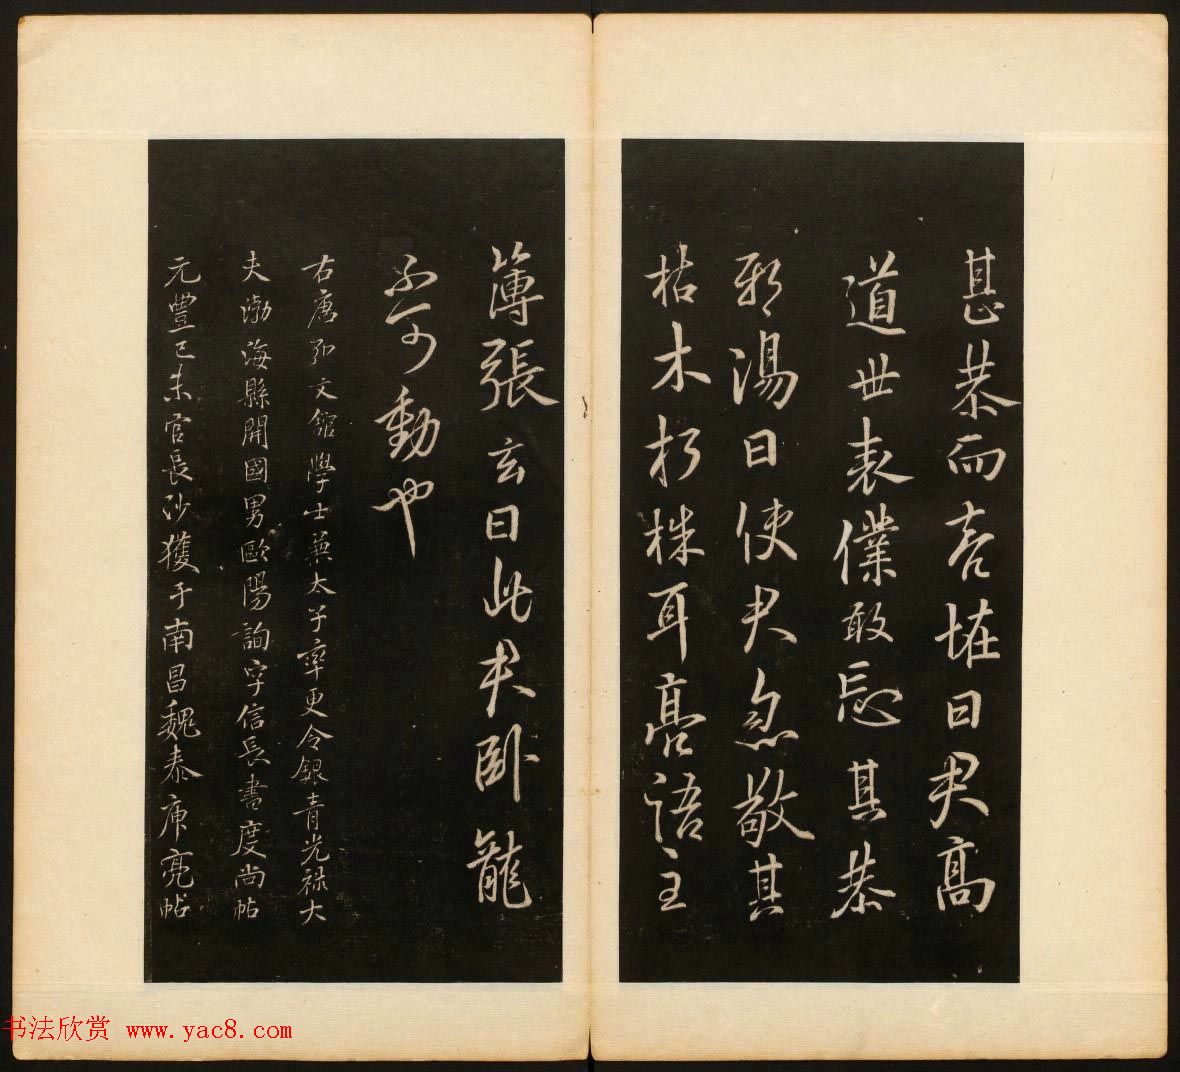 甚恭而言在曰君高
道世表僕敢忘其恭
邪湯曰使君忽敬其
枯木朽株耳亮語主
簿張玄曰此君卧龍
不可動也
右唐弘文館學士兼太子率更令銀青光祿大
夫渤海縣開國男歐陽詢字信長書度尚帖
元豐己未官長沙獲于南昌魏泰庾亮帖
书法欣赏 www.yac8.com